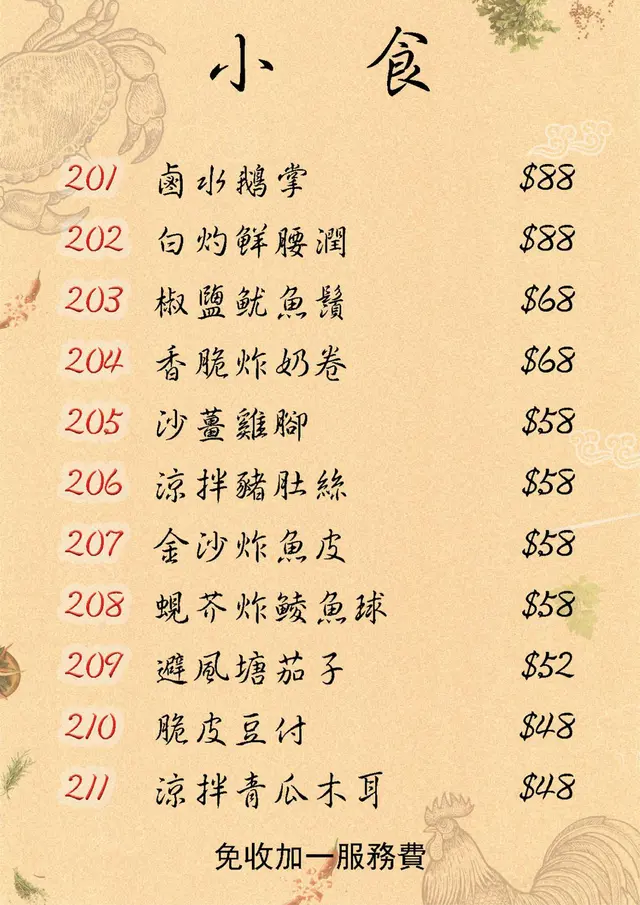 小食
201 鹵水鵝掌 $88
202 白灼鮮腰潤 $88
203 椒鹽魷魚鬚 $68
204 香脆炸奶卷 $68
205 沙薑雞腳 $58
206 涼拌豬肚絲 $58
207 金沙炸魚皮 $58
208 蜆芥炸鯪魚球 $58
209 避風塘茄子 $52
210 脆皮豆付 $48
211 涼拌青瓜木耳 $48
免收加一服務費